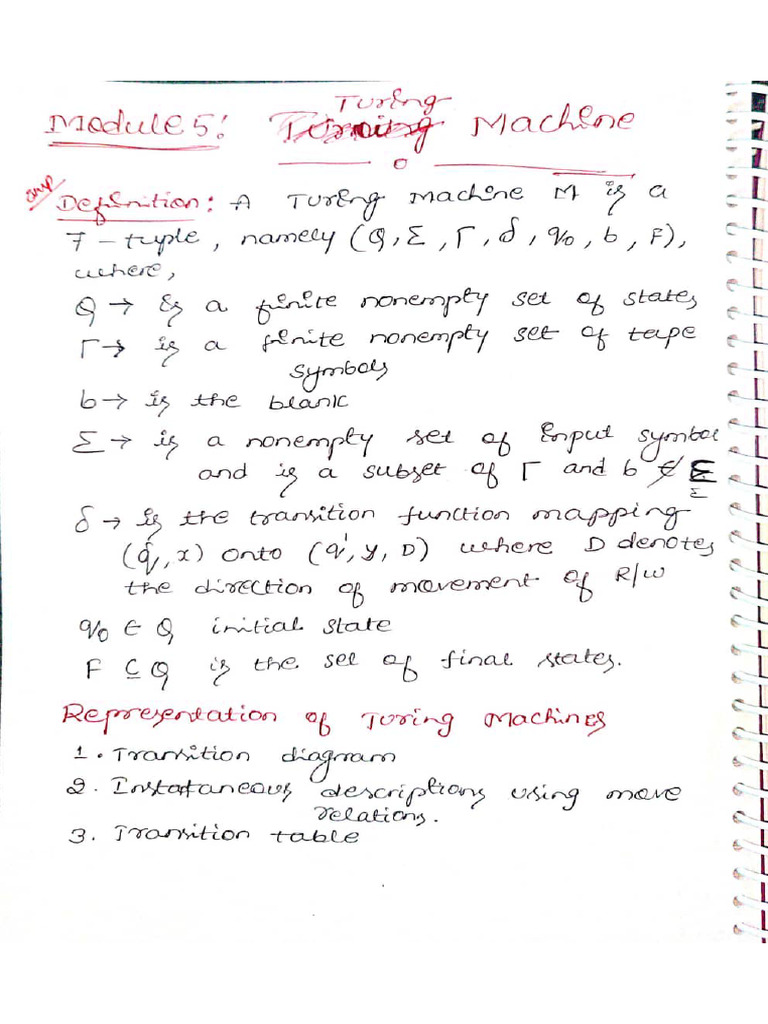 Module 5: Turing Machine
imp
Definition: A Turing Machine M is a
7 - tuple, namely (Q, Σ, Γ, δ, q0, b, F),
where,
Q → is a finite nonempty set of states
Γ → is a finite nonempty set of tape
symbols
b → is the blank
Σ → is a nonempty set of input symbol
and is a subset of Γ and b ∉ Σ
Σ
δ → is the transition function mapping
(q, x) onto (q', y, D) where D denotes
the direction of movement of R/W
q0 ∈ Q initial state
F ⊆ Q is the set of final states.
Representation of Turing Machines
1. Transition diagram
2. Instataneous descriptions using move
relations.
3. Transition table